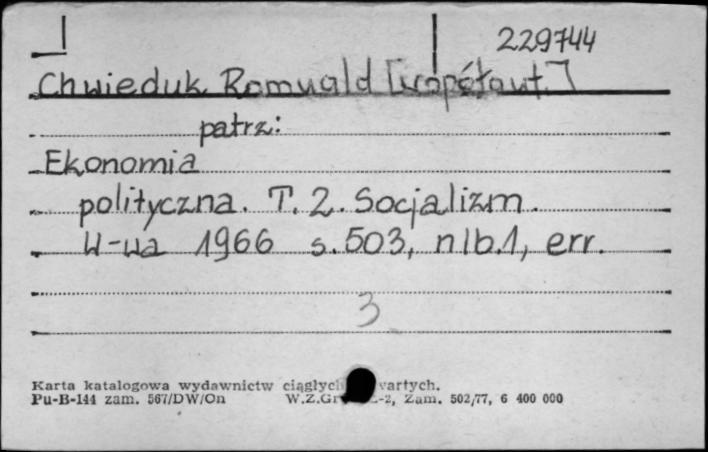 229744
Chwieduk Romuald [współaut.]
patrz:
Ekonomia
polityczna. T. 2. Socjalizm.
W-wa 1966 s. 503, nlb. 1, err.
3
Karta katalogowa wydawnictw ciągłych
Pu-B-144 zam. 567/DW/On W.Z.Gr -2, Zam. 502/77, 6 400 000